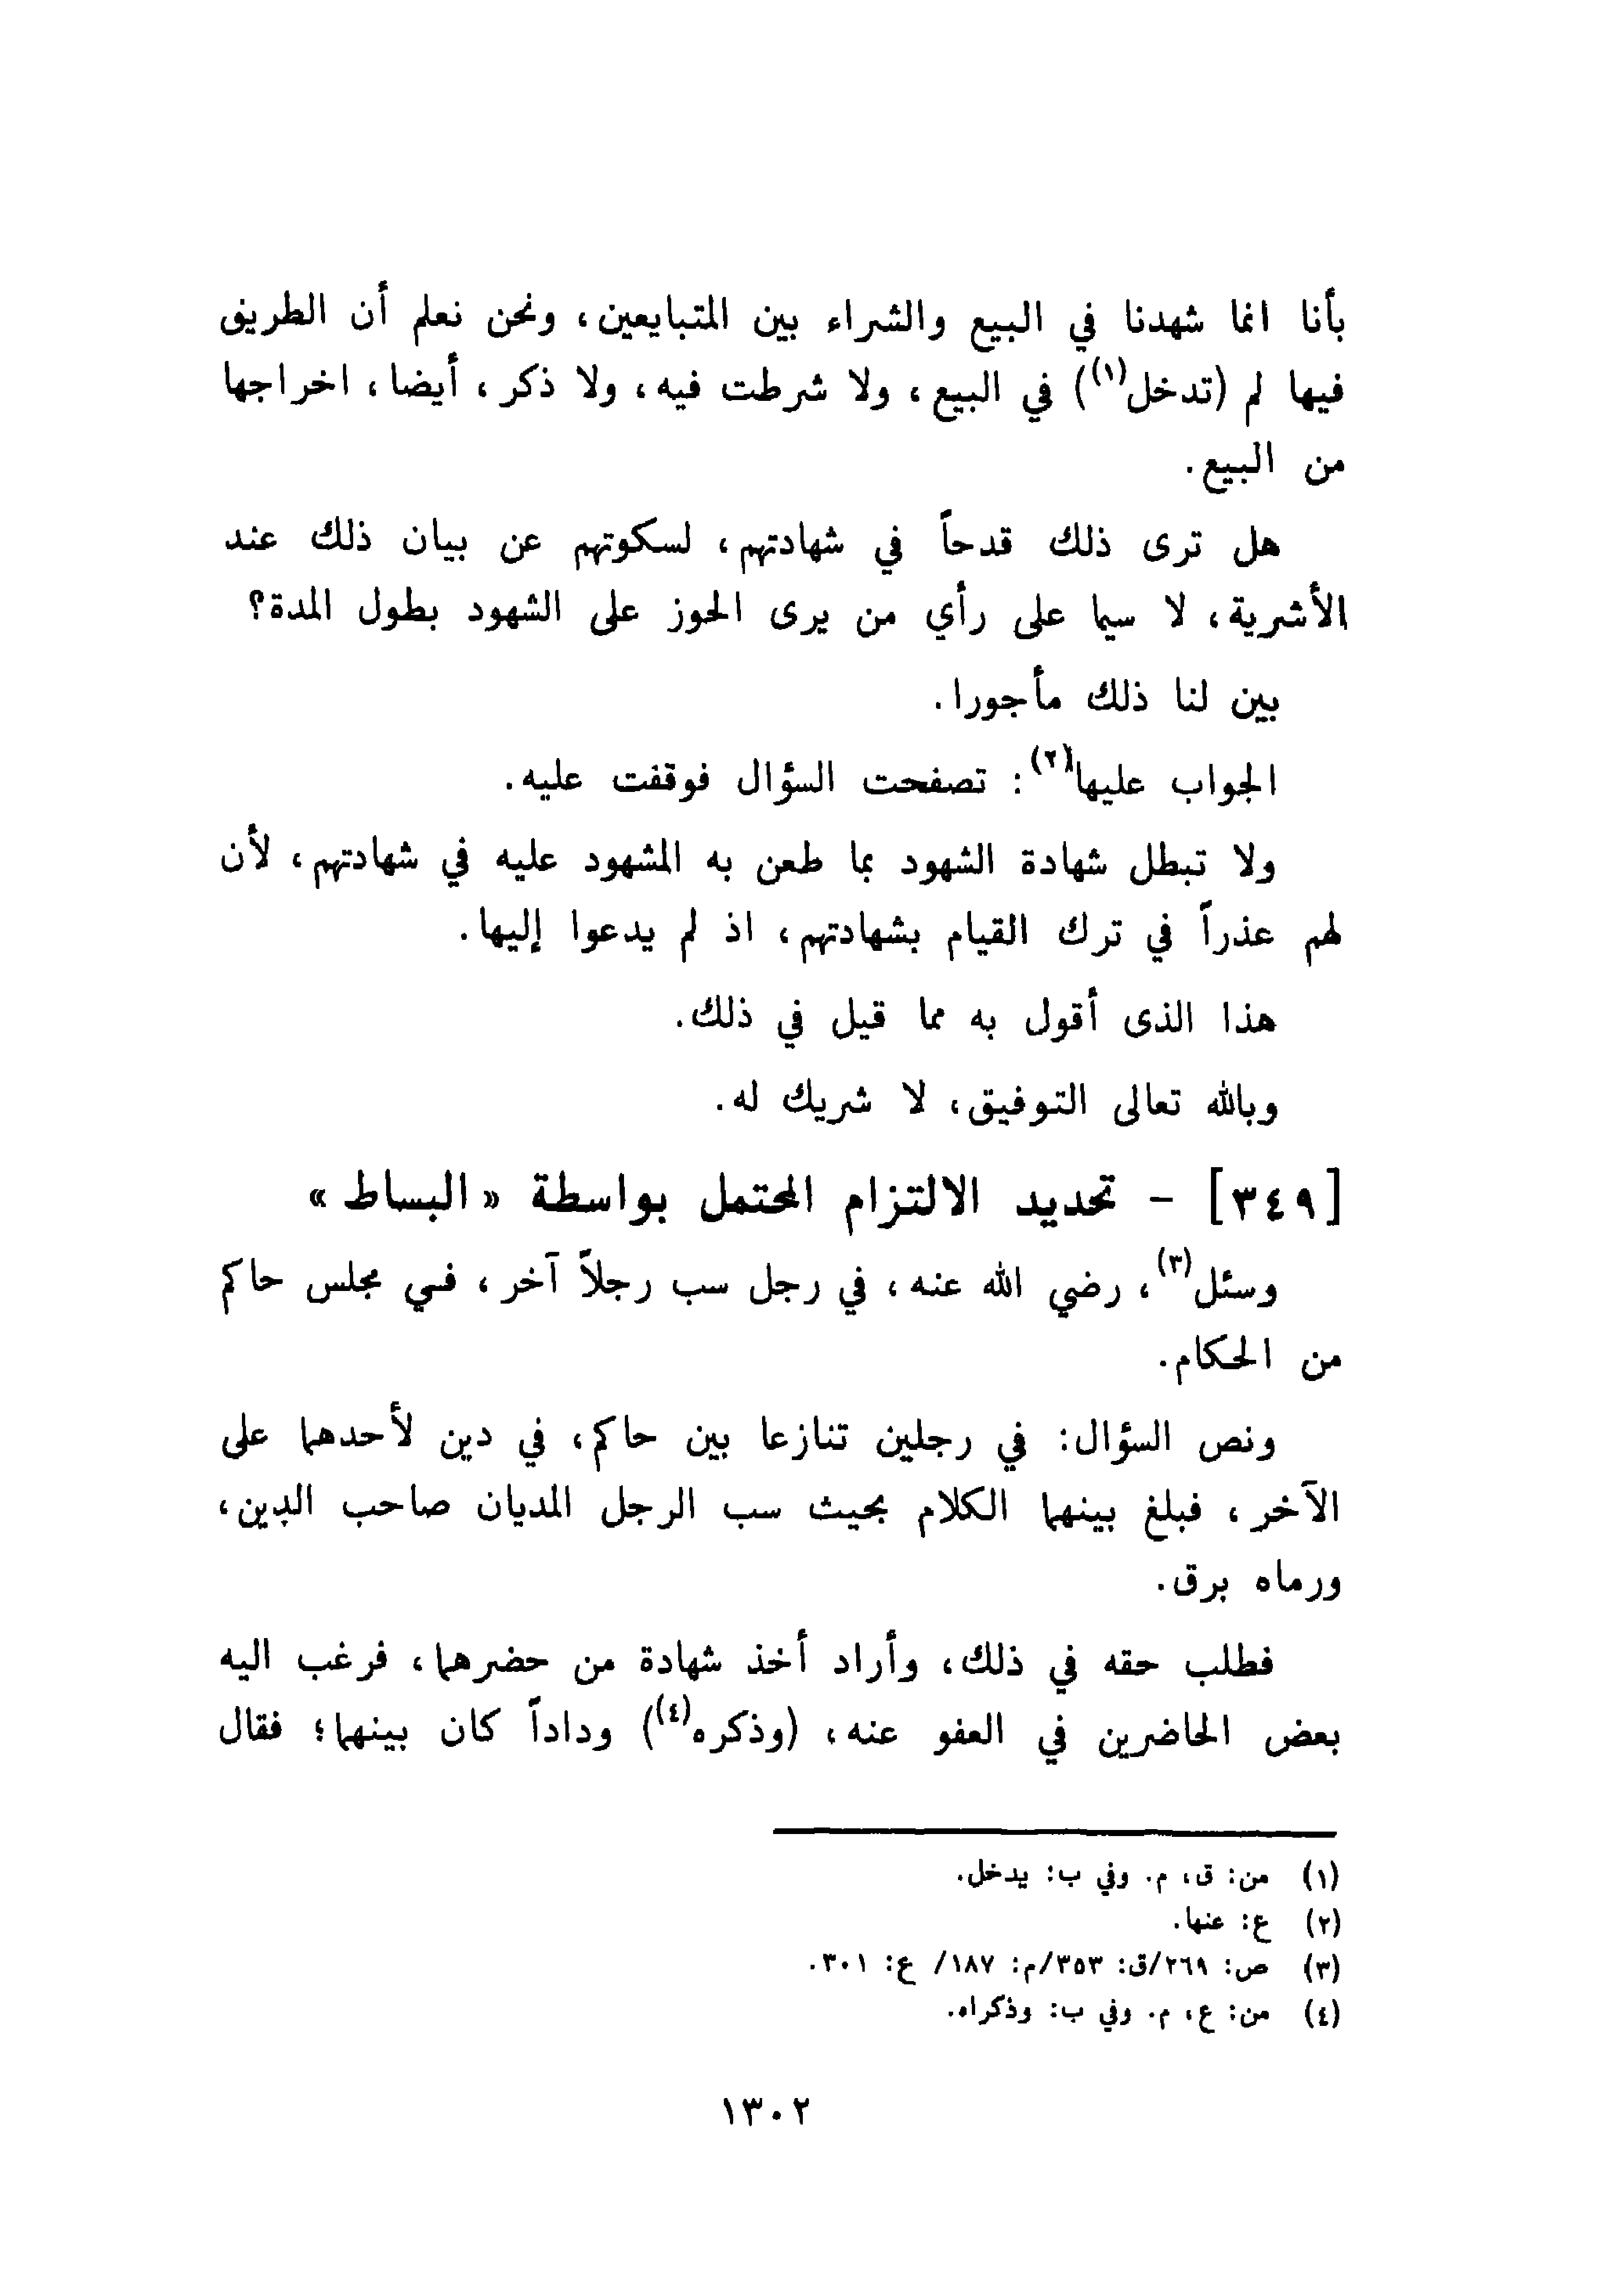 بأنا انما شهدنا في البيع والشراء بين المتبايعين، ونحن نعلم أن الطريق
فيها لم (تدخل(١)) في البيع، ولا شرطت فيه، ولا ذكر، أيضا، اخراجها
من البيع.
هل ترى ذلك قدحاً في شهادتهم، لسكوتهم عن بيان ذلك عند
الأشرية، لا سيما على رأي من يرى الحوز على الشهود بطول المدة؟
بين لنا ذلك مأجورا.
الجواب عليها(٢): تصفحت السؤال فوقفت عليه.
ولا تبطل شهادة الشهود بما طعن به المشهود عليه في شهادتهم، لأن
لهم عذراً في ترك القيام بشهادتهم، اذ لم يدعوا إليها.
هذا الذى أقول به مما قيل في ذلك.
وبالله تعالى التوفيق، لا شريك له.
[٣٤٩] - تحديد الالتزام المحتمل بواسطة «البساط»
وسئل(٣)، رضي الله عنه، في رجل سب رجلاً آخر، في مجلس حاكم
من الحكام.
ونص السؤال: في رجلين تنازعا بين حاكم، في دين لأحدهما على
الآخر، فبلغ بينهما الكلام بحيث سب الرجل المديان صاحب الدين،
ورماه برق.
فطلب حقه في ذلك، وأراد أخذ شهادة من حضرهما، فرغب اليه
بعض الحاضرين في العفو عنه، (وذكره(٤)) وداداً كان بينهما؛ فقال
(١) من: ق، م. وفي ب: يدخل.
(٢) ع: عنها.
(٣) ص: ٢٦٩/ق: ٣٥٣/م: ١٨٧/ ع: ٣٠١.
(٤) من: ع، م. وفي ب: وذكراه.
١٣٠٢